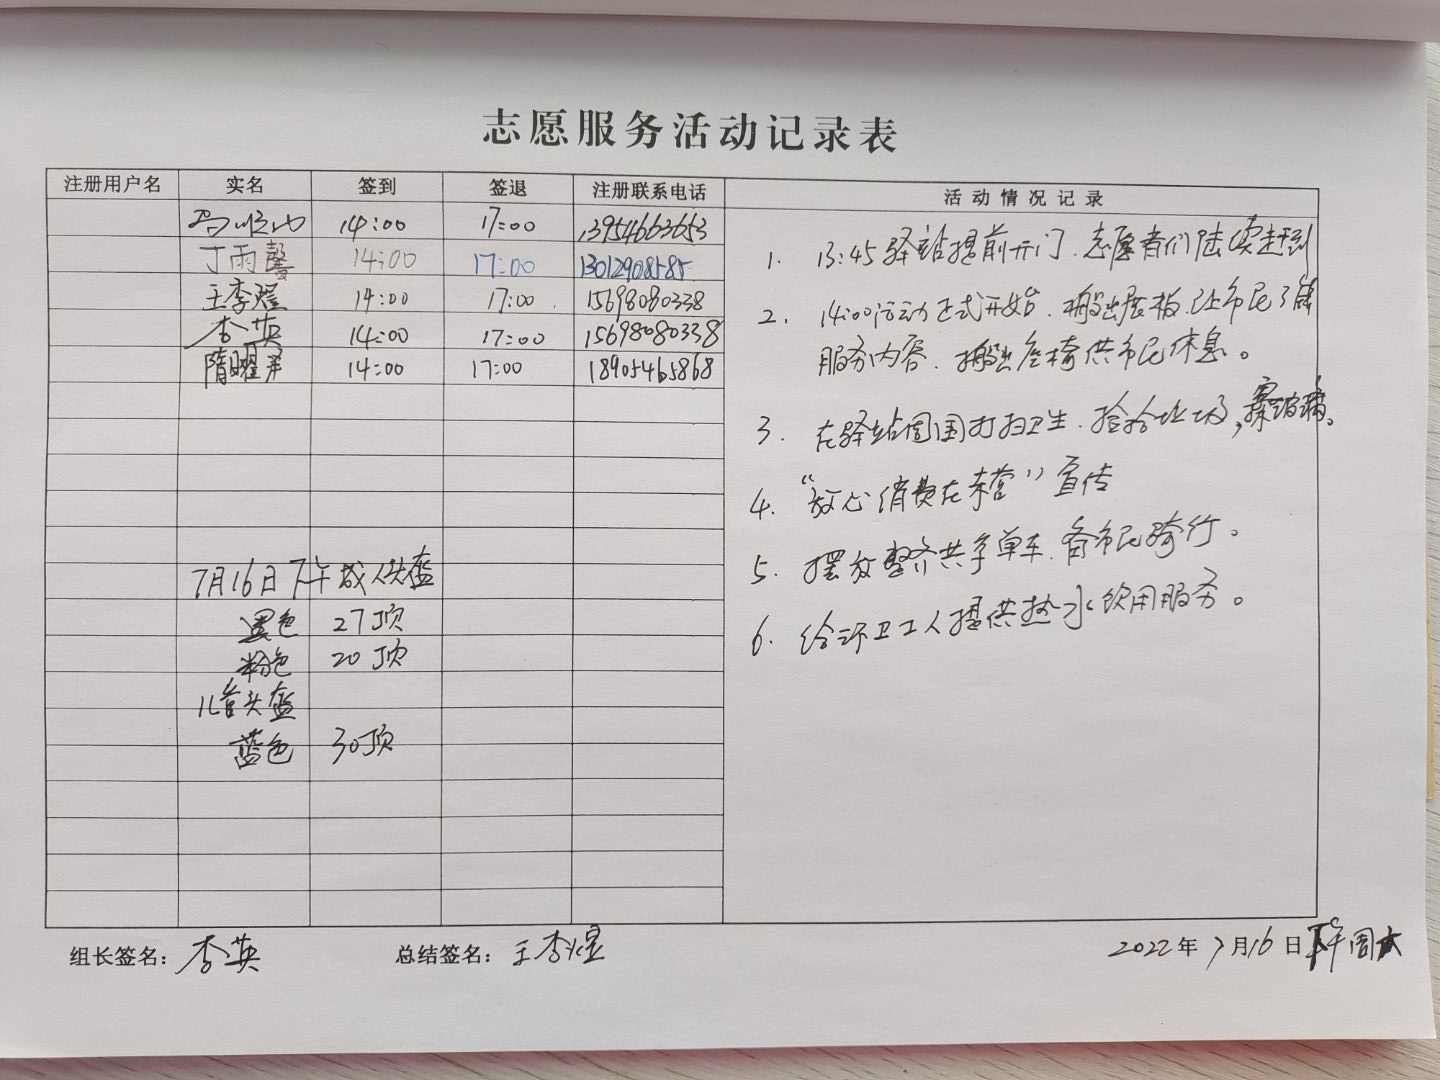 志愿服务活动记录表
注册用户名 实名 签到 签退 注册联系电话 活动情况记录
14:00 17:00 13954663653
丁雨馨 14:00 17:00 13012908585
王李煜 14:00 17:00 15698080338
李英 14:00 17:00 15698080338
隋曜 14:00 17:00 18905465868
7月16日下午成人头盔
黑色 27顶
粉色 20顶
儿童头盔
蓝色 30顶
1. 13:45驿站提前开门、志愿者们陆续赶到
2. 14:00活动正式开始、搬出展板、让市民了解
服务内容、搬出座椅供市民休息。
3. 在驿站周围打扫卫生、捡拾垃圾,擦玻璃。
4. “放心消费在东营”宣传
5. 摆放整齐共享单车、备市民骑行。
6. 给环卫工人提供热水饮用服务。
组长签名: 李英 总结签名: 王李煜 2022年7月16日下午周六